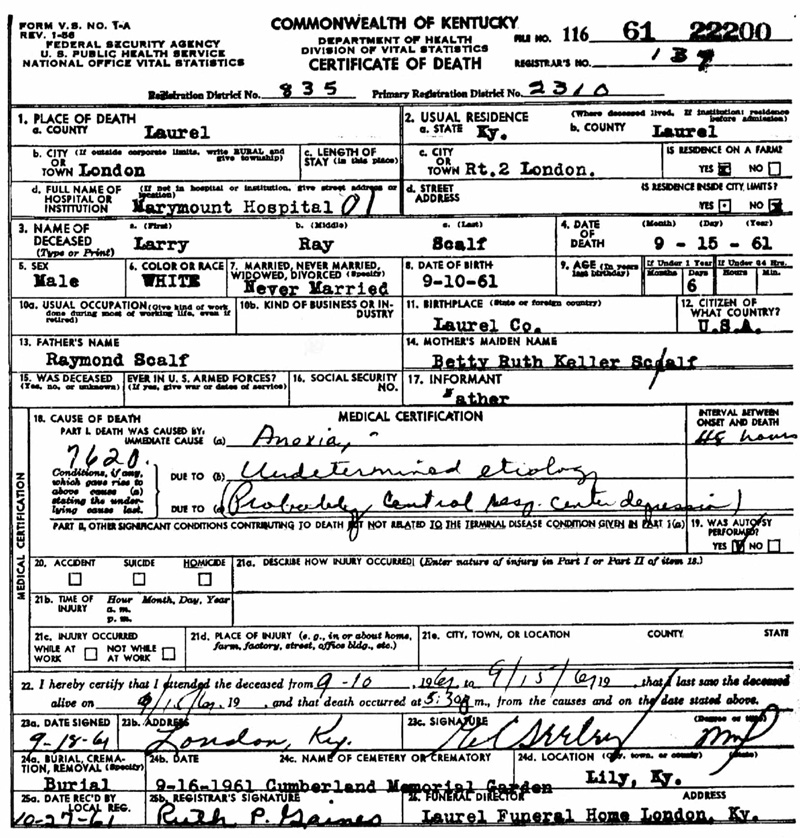 FORM V.S. NO. 1-A
REV. 1-56
FEDERAL SECURITY AGENCY
U. S. PUBLIC HEALTH SERVICE
NATIONAL OFFICE VITAL STATISTICS
COMMONWEALTH OF KENTUCKY
DEPARTMENT OF HEALTH
DIVISION OF VITAL STATISTICS
CERTIFICATE OF DEATH
FILE NO. 116 61 22200
REGISTRAR'S NO. 137
Registration District No. 835 Primary Registration District No. 2310
1. PLACE OF DEATH
a. COUNTY Laurel
2. USUAL RESIDENCE (Where deceased lived. If institution: residence before admission)
a. STATE Ky. b. COUNTY Laurel
b. CITY (If outside corporate limits, write RURAL and give township)
OR
TOWN London
c. LENGTH OF STAY (in this place)
c. CITY
OR
TOWN Rt.2 London.
IS RESIDENCE ON A FARM?
YES NO
d. FULL NAME OF HOSPITAL OR INSTITUTION (If not in hospital or institution, give street address or location)
Marymount Hospital 01
d. STREET ADDRESS
IS RESIDENCE INSIDE CITY LIMITS?
YES NO
3. NAME OF DECEASED (Type or Print)
a. (First) b. (Middle) c. (Last)
Larry Ray Scalf
4. DATE OF DEATH (Month) (Day) (Year)
9 - 15 - 61
5. SEX
Male
6. COLOR OR RACE
WHITE
7. MARRIED, NEVER MARRIED, WIDOWED, DIVORCED (Specify)
Never Married
8. DATE OF BIRTH
9-10-61
9. AGE (In years last birthday)
If Under 1 Year If Under 24 Hrs.
Months Days Hours Min.
6
10a. USUAL OCCUPATION (Give kind of work done during most of working life, even if retired)
10b. KIND OF BUSINESS OR INDUSTRY
11. BIRTHPLACE (State or foreign country)
Laurel Co.
12. CITIZEN OF WHAT COUNTRY?
U.S.A.
13. FATHER'S NAME
Raymond Scalf
14. MOTHER'S MAIDEN NAME
Betty Ruth Keller Scalf
15. WAS DECEASED EVER IN U. S. ARMED FORCES?
(Yes, no, or unknown) (If yes, give war or dates of service)
16. SOCIAL SECURITY NO.
17. INFORMANT
Father
MEDICAL CERTIFICATION
18. CAUSE OF DEATH
MEDICAL CERTIFICATION
INTERVAL BETWEEN ONSET AND DEATH
PART I. DEATH WAS CAUSED BY:
IMMEDIATE CAUSE (a) Anoxia, 48 hours
7620.
Conditions, if any, which gave rise to above cause (a) stating the underlying cause last.
DUE TO (b) Undetermined etiology
DUE TO (c) (Probably central resp. center depression)
PART II, OTHER SIGNIFICANT CONDITIONS CONTRIBUTING TO DEATH BUT NOT RELATED TO THE TERMINAL DISEASE CONDITION GIVEN IN PART I(a)
19. WAS AUTOPSY PERFORMED?
YES NO
20. ACCIDENT SUICIDE HOMICIDE
21a. DESCRIBE HOW INJURY OCCURRED: (Enter nature of injury in Part I or Part II of item 18.)
21b. TIME OF INJURY Hour Month, Day, Year
a. m.
p. m.
21c. INJURY OCCURRED
WHILE AT WORK NOT WHILE AT WORK
21d. PLACE OF INJURY (e. g., in or about home, farm, factory, street, office bldg., etc.)
21e. CITY, TOWN, OR LOCATION COUNTY STATE
22. I hereby certify that I attended the deceased from 9-10, 1961, to 9/15/61 19 , that I last saw the deceased
alive on 9/15/61, 19 , and that death occurred at 5:30 m., from the causes and on the date stated above.
23a. DATE SIGNED
9-18-61
23b. ADDRESS
London, Ky.
23c. SIGNATURE (Degree or title)
MD
24a. BURIAL, CREMATION, REMOVAL (Specify)
Burial
24b. DATE
9-16-1961
24c. NAME OF CEMETERY OR CREMATORY
Cumberland Memorial Garden
24d. LOCATION (City, town, or county) (State)
Lily, Ky.
25a. DATE REC'D BY LOCAL REG.
10-27-61
25b. REGISTRAR'S SIGNATURE
Ruth P. Gaines
26. FUNERAL DIRECTOR ADDRESS
Laurel Funeral Home London, Ky.